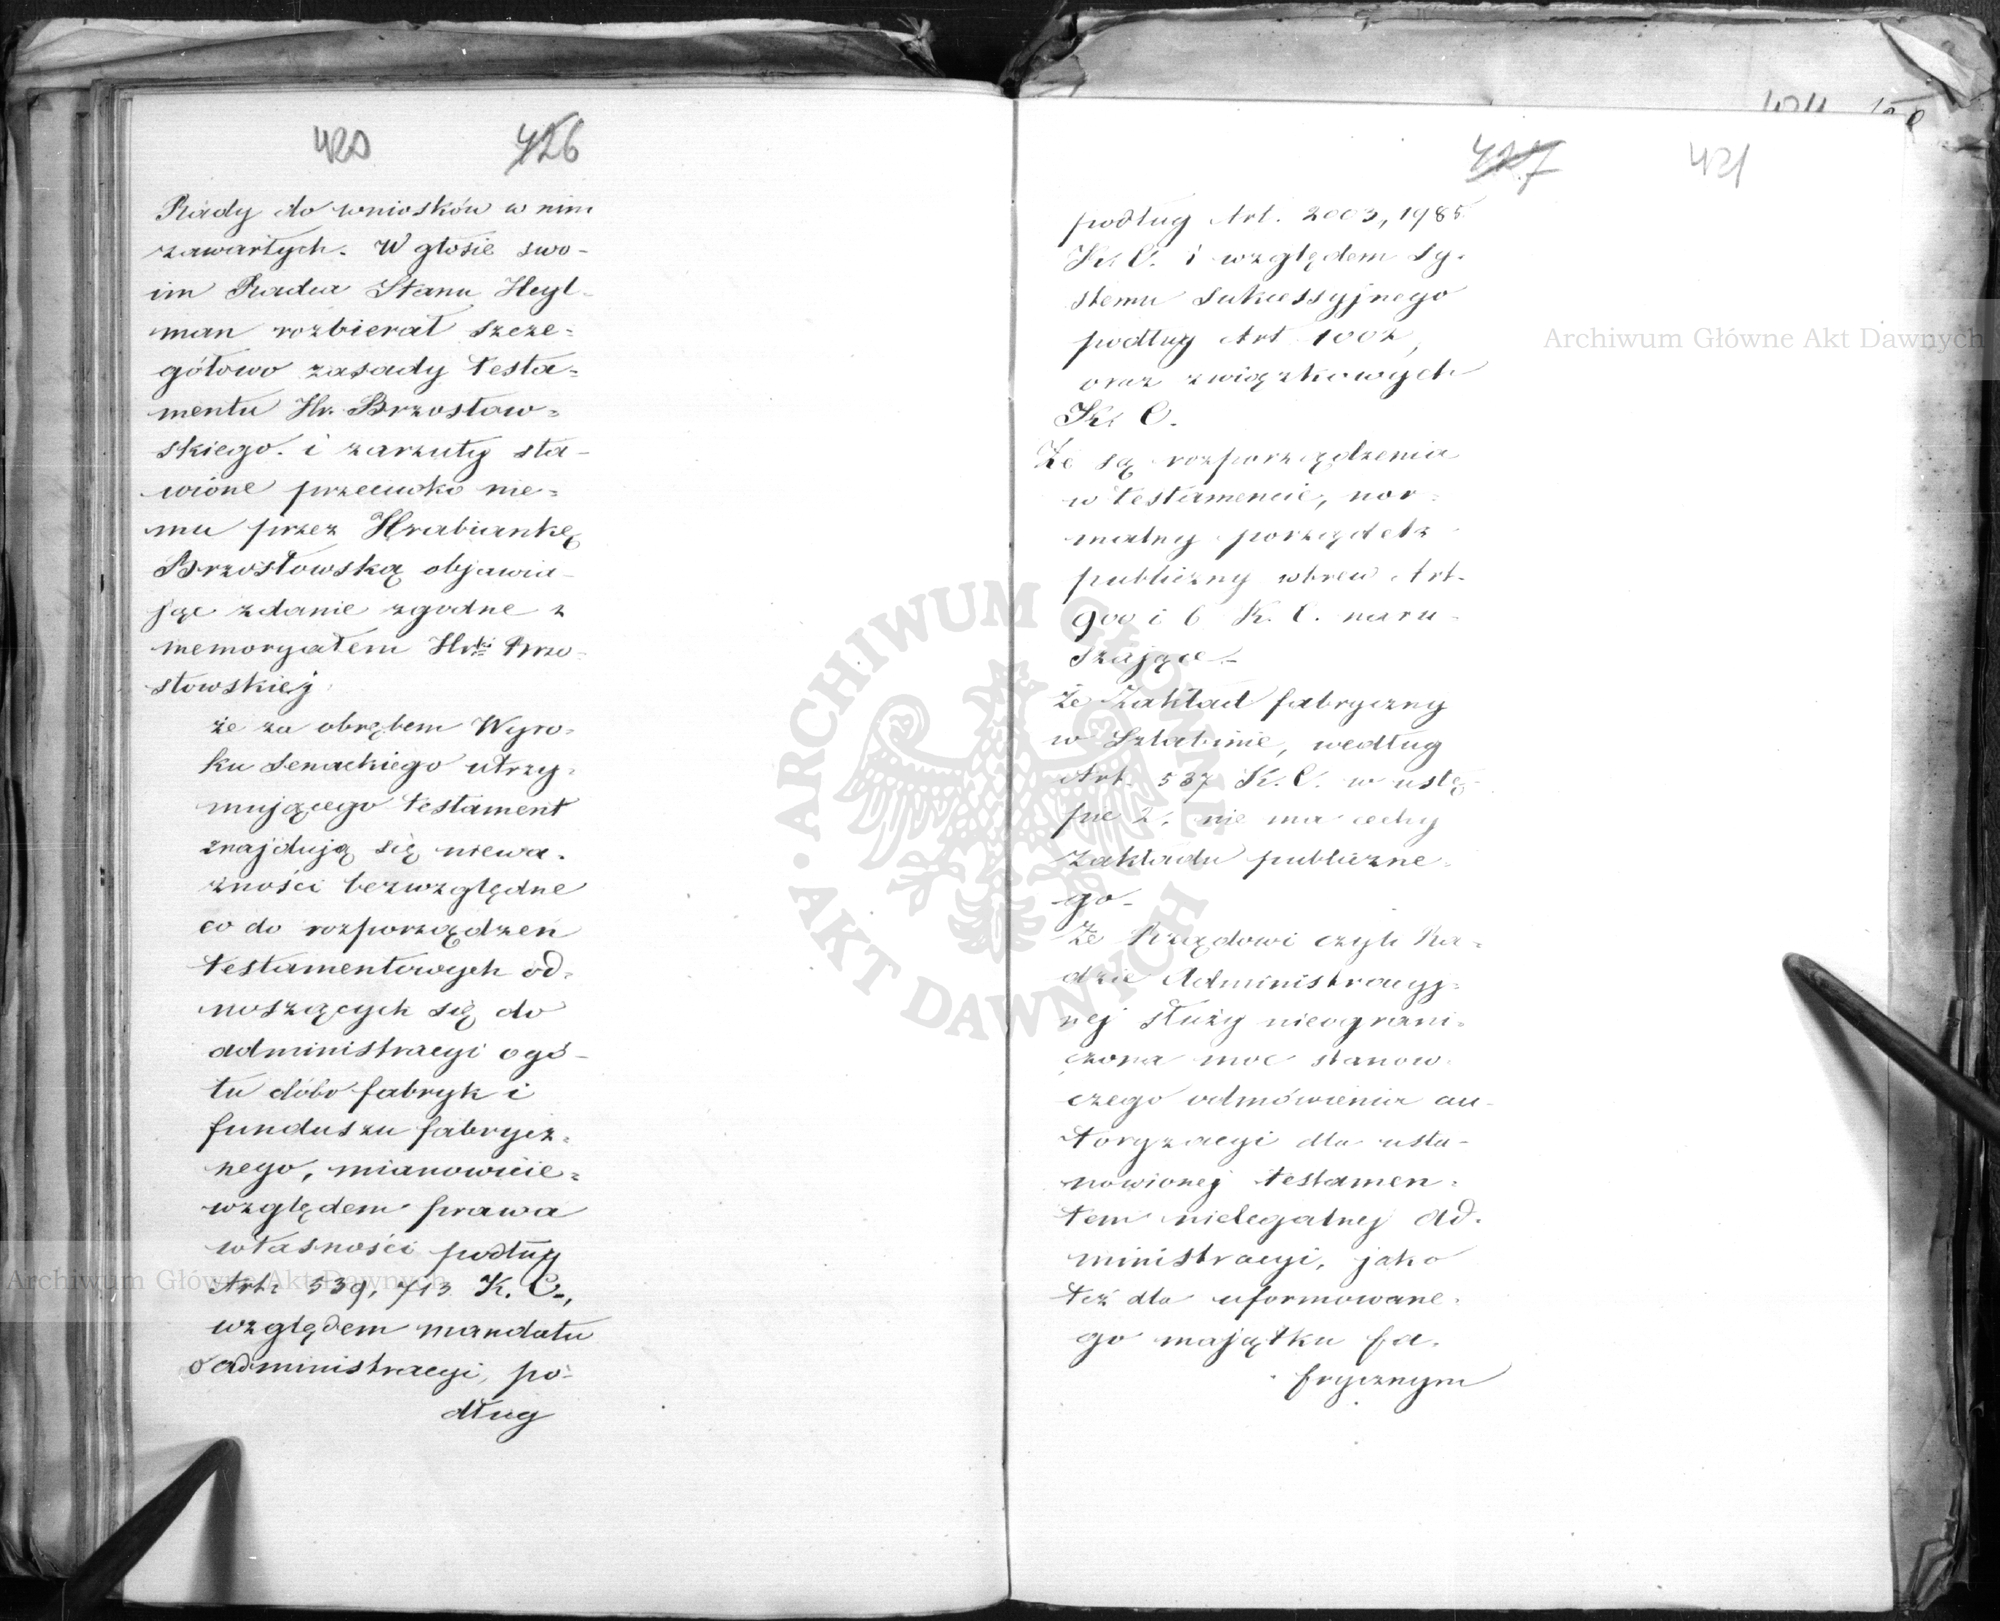 420 426
Rady do wniosków w nim
zawartych. W głosie swo-
im Radca Stanu Heyl-
man rozbierał szcze=
gółowo zasady testa=
mentu Hr. Brzostow=
skiego i zarzuty sta-
wione przeciwko nie=
mu przez Hrabiankę
Brzostowską objawia-
jąc zdanie zgodne z
memoryałem Hrki Brzo-
stowskiej
że za obrębem Wyro-
ku Senackiego utrzy-
mującego testament
znajdują się niewa-
żności bezwzględne
co do rozporządzeń
testamentowych od-
noszących się do
administracyi ogó-
łu dóbr fabryk i
funduszu fabrycz-
nego, mianowicie=
względem prawa
własności podług
Art. 539, 713 K. C.,
względem mandatu
o administracyi, po-
dług
427 421
podług Art. 2003, 1985
K. C. i względem sy-
stemu sukcessyjnego
podług Art 1002,
oraz związkowych
K. C.
Że są rozporządzenia
w testamencie, nor-
malny porządek
publiczny wbrew Art.
900 i 6 K. C. naru-
szające.-
Że Zakład fabryczny
w Sztabinie, według
Art. 537 K. C. w ustę-
pie 2. nie ma cechy
Zakładu publiczne-
go-
Że Rządowi czyli Ra-
dzie Administracyj-
nej służy nieograni-
czona moc stanow-
czego odmówienia au-
toryzacyi dla usta-
nowionej testamen-
tem nielegalnej ad-
ministracyi, jako
też dla uformowane-
go majątku fa-
brycznym
Archiwum Główne Akt Dawnych
Archiwum Główne Akt Dawnych
ARCHIWUM GŁÓWNE AKT DAWNYCH